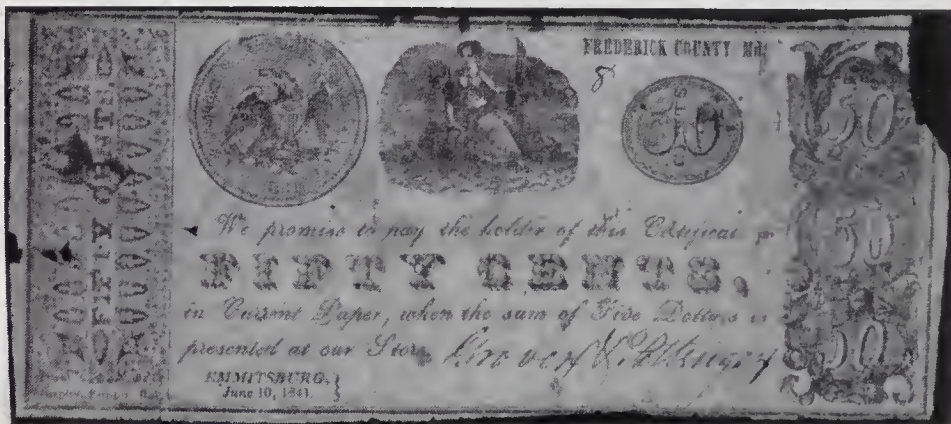 FIFTY CENTS
FREDERICK COUNTY Md
8
50
CENTS
50
50
50
We promise to pay the holder of this
FIFTY CENTS,
in Current Paper, when the sum of Five Dollars is
presented at our Store
EMMITSBURG,
June 10, 1841.